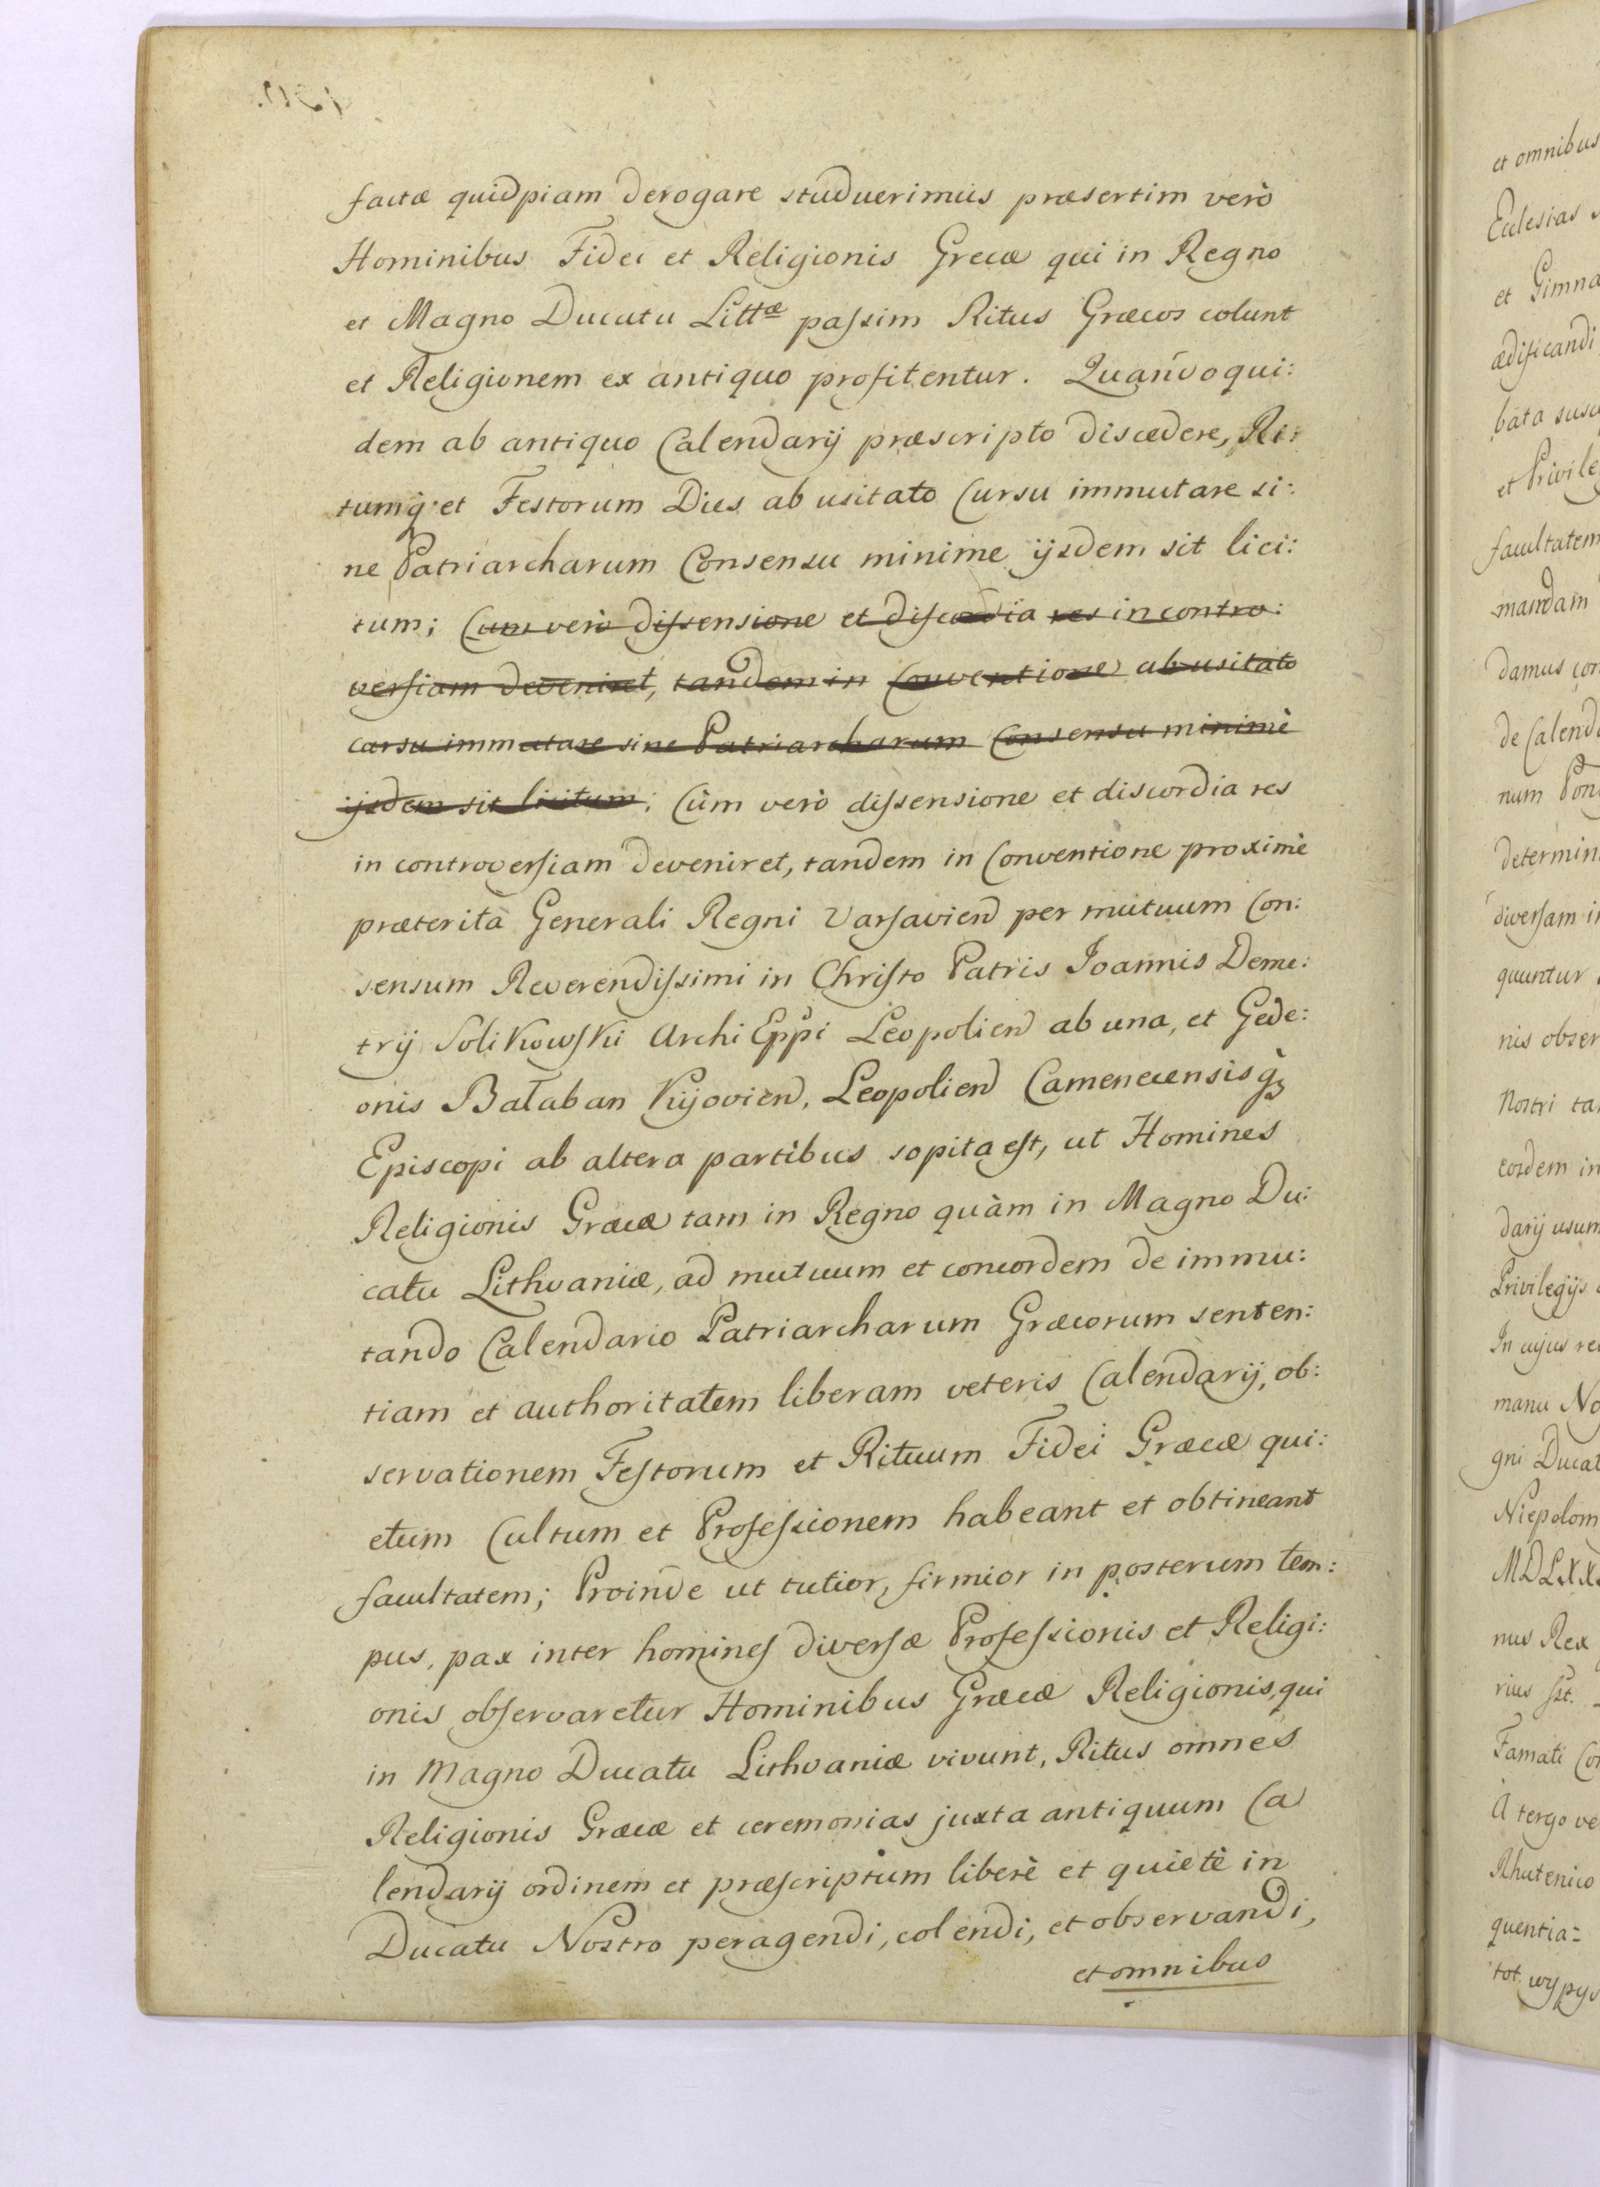 factæ quidpiam derogare studuerimus præsertim verò
Hominibus Fidei et Religionis Grecæ qui in Regno
et Magno Ducatu Littæ passim Ritus Græcos colunt
et Religionem ex antiquo profitentur. Quandoqui:
dem ab antiquo Calendarij præscripto discedere, Ri:
tumq et Festorum Dies ab usitato Cursu immutare si:
ne Patriarcharum Consensu minime ijsdem sit lici:
tum; Cum verò dissensione et discordia res in contro:
versiam deveniret, tandem in Conventione ab usitato
cursu immutare sine Patriarcharum Consensu minimè
ijsdem sit licitum; Cùm verò dissensione et discordia res
in controversiam deveniret, tandem in Conventione proximè
præterita Generali Regni Varsavien per mutuum Con:
sensum Reverendissimi in Christo Patris Joannis Deme:
trij Solikowski Archi Eppi Leopolien ab una, et Gede:
onis Bałaban Kijovien, Leopolien Camenecensis q
Episcopi ab altera partibus sopita est, ut Homines
Religionis Græcæ tam in Regno quàm in Magno Du:
catu Lithvaniæ, ad mutuum et concordem de immu:
tando Calendario Patriarcharum Græcorum senten:
tiam et authoritatem liberam veteris Calendarij, ob:
servationem Festorum et Rituum Fidei Græcæ qui:
etum Cultum et Professionem habeant et obtineant
facultatem; Proinde ut tutior, firmior in posterum tem:
pus, pax inter homines diversæ Professionis et Religi:
onis observaretur Hominibus Græcæ Religionis, qui
in Magno Ducatu Lithvaniæ vivunt, Ritus omnes
Religionis Græcæ et ceremonias juxta antiquum Ca
lendarij ordinem et præscriptum liberè et quietè in
Ducatu Nostro peragendi, colendi, et observandi,
et omnibus
et omnibus
Ecclesias
et Gimna
ædificandi
bata susc
et Privile
facultatem
mandam
damus con
de Calend
num Pon
determin
diversam in
quuntur
nis obser
Nostri ta
eosdem in
darij usum
Privilegijs
In cujus re
manu No
gni Ducat
Niepolom
MDLXX
nus Rex
rius sst.
Famati Co
A tergo ve
Rhutenico
quentia=
tot wypys